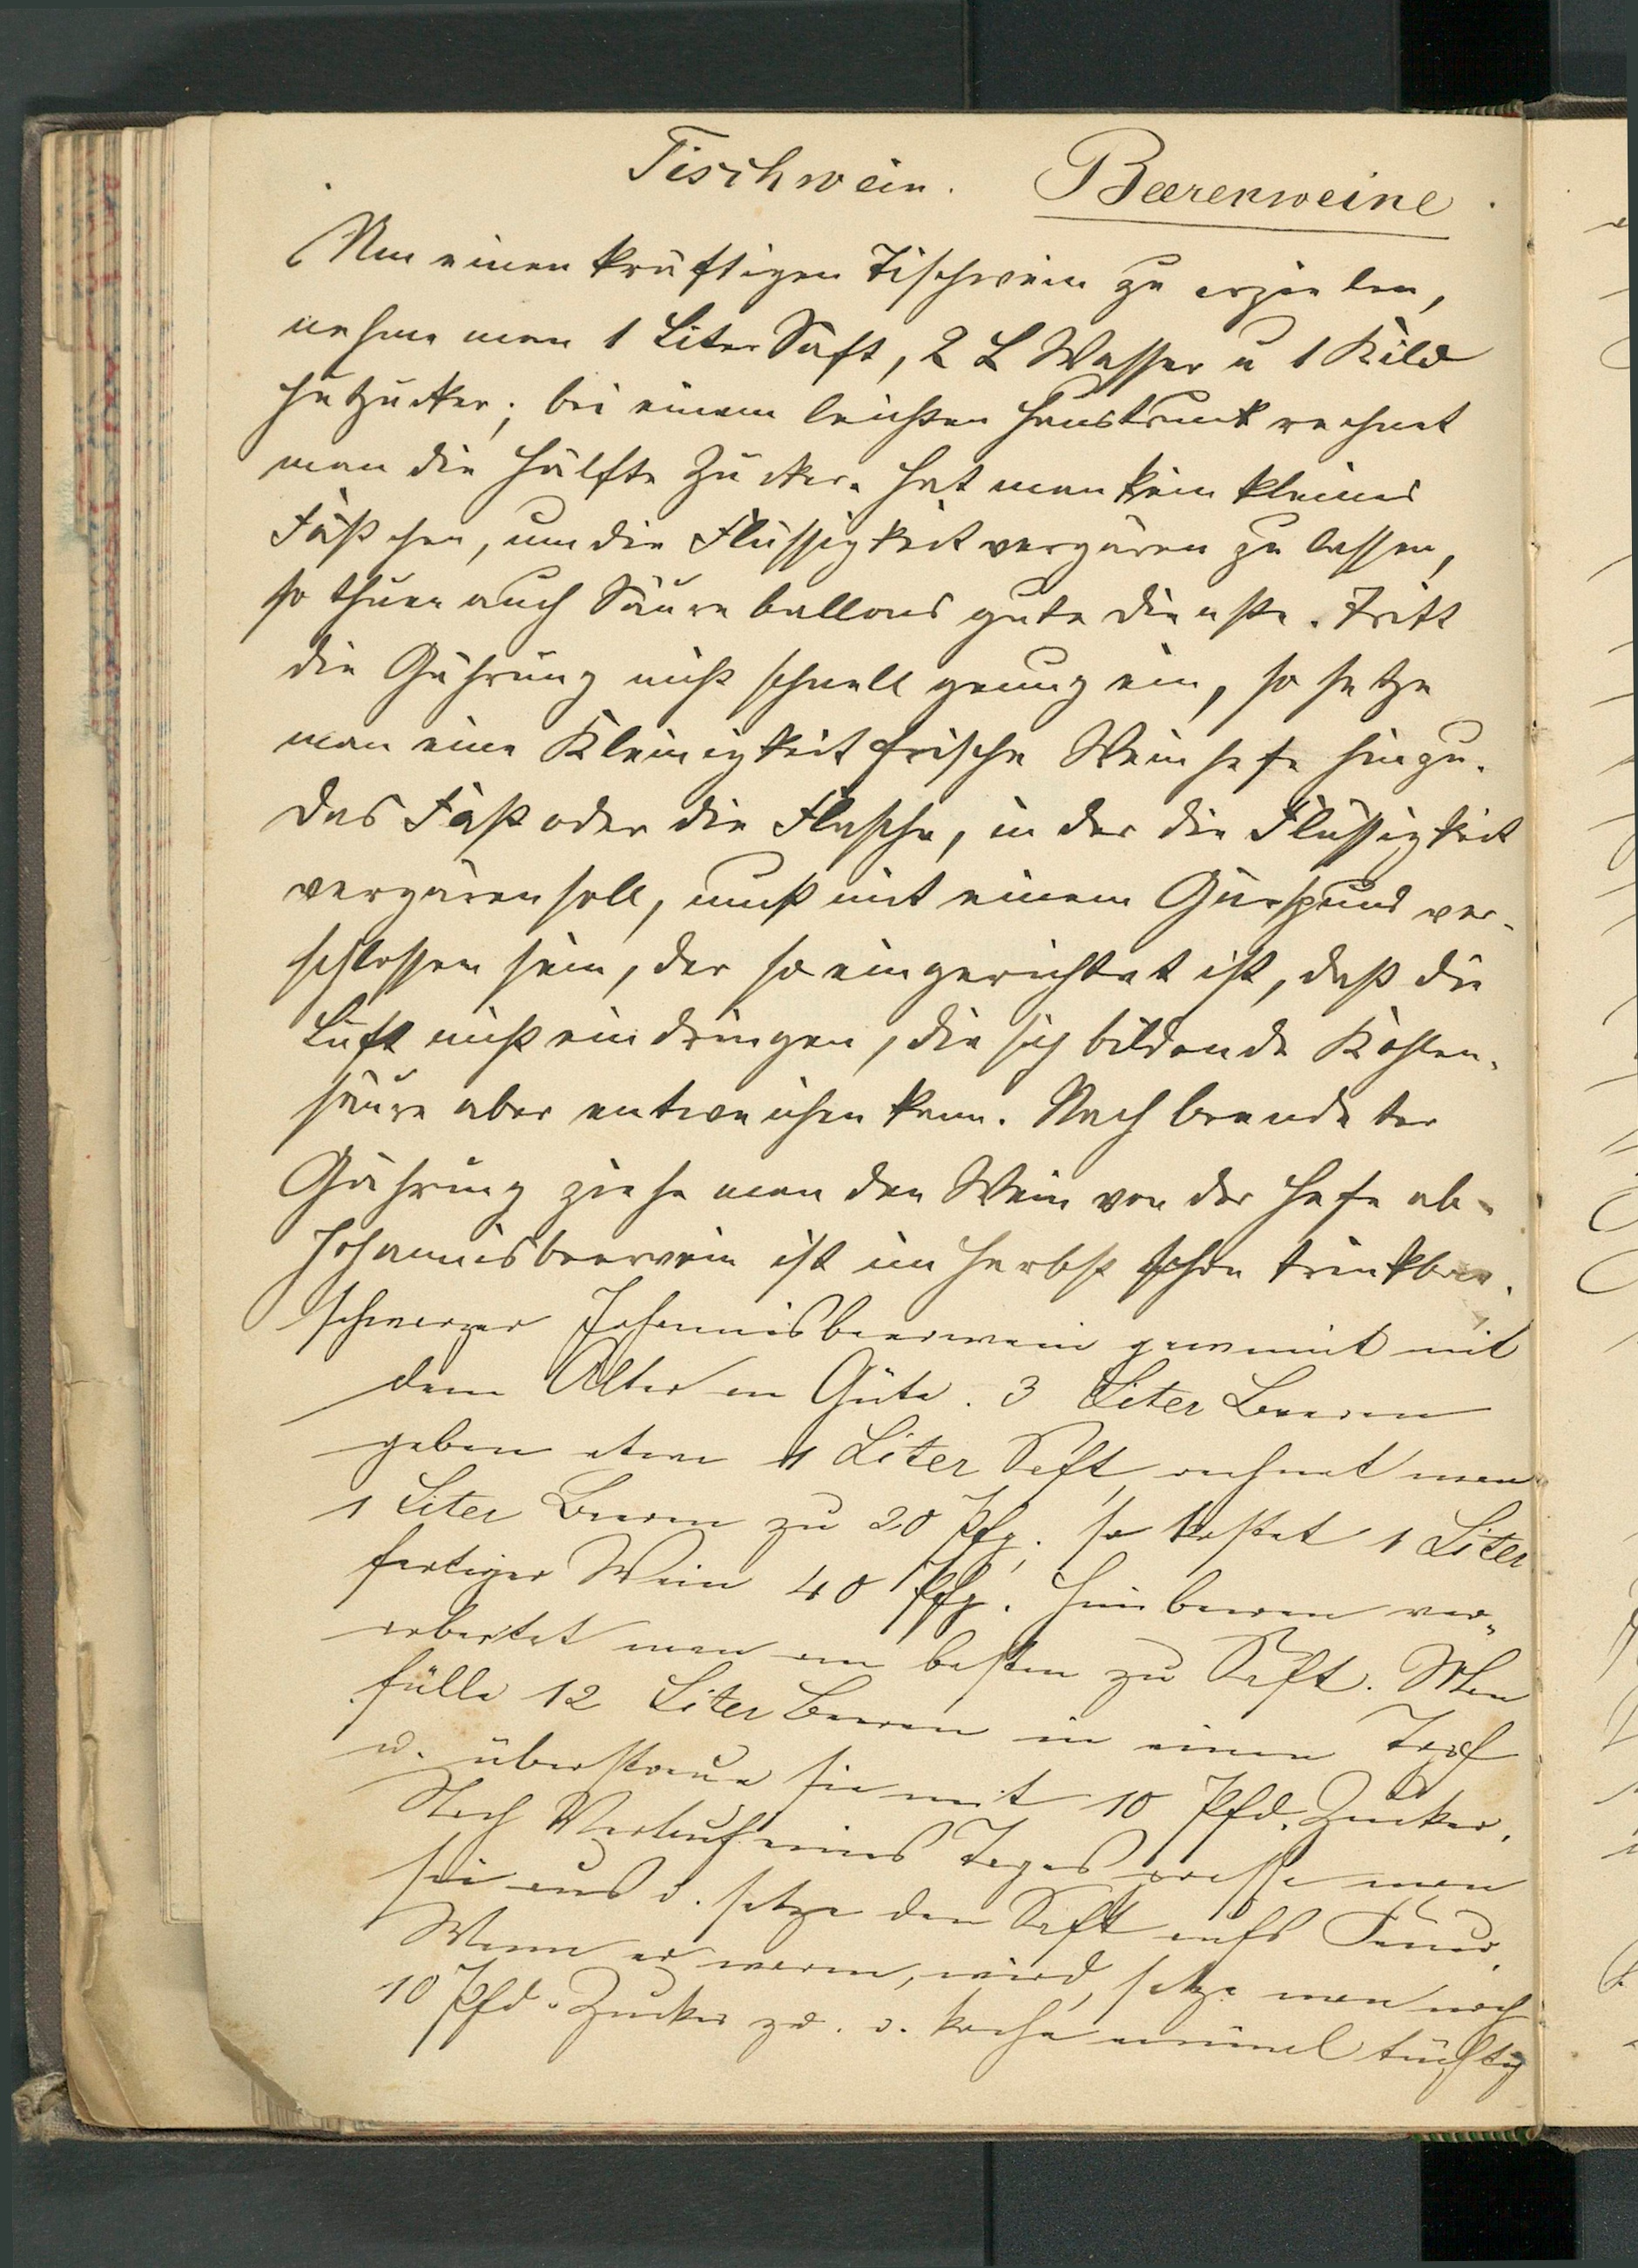 Tischwein. Beerenweine.
Um einen kräftigen Tischwein zu erzielen,
nehme man 1 Liter Saft, 2 L Wasser u 1 Kilo
Hutzucker; bei einem leichten Haustrunk rechnet
man die Hälfte Zucker. Hat man kein kleines
Fäßchen, um die Flüssigkeit vergären zu lassen,
so thuen auch Säureballons gute Dienste. Tritt
die Gährung nicht schnell genug ein, so setze
man eine Kleinigkeit frische Weinhefe hinzu.
Das Faß oder die Flasche, in der die Flüssigkeit
vergären soll, muß mit einem Gärspund ver-
schlossen sein, der so eingerichtet ist, daß die
Luft nicht eindringen, die sich bildende Kohlen-
säure aber entweichen kann. Nach beendeter
Gährung ziehe man den Wein von der Hefe ab.
Johannisbeerwein ist im Herbst schon trinkbar.
schwarzer Johannisbeerwein gewinnt mit
dem Alter an Güte. 3 Liter Beeren
geben etwa 1 Liter Saft, rechnet man
1 Liter Beeren zu 20 Pfg. so kostet 1 Liter
fertiger Wein 40 Pfg. Himbeeren ver-
arbeitet man am besten zu Saft. Man
fülle 12 Liter Beeren in einen Topf
u. überstreue sie mit 10 Pfd. Zucker.
Nach Verlauf eines Tages presse man
sie aus u. setze den Saft aufs Feuer.
Wenn er warm, wird, setze man noch
10 Pfd. Zucker zu. u. koche einmal tüchtig